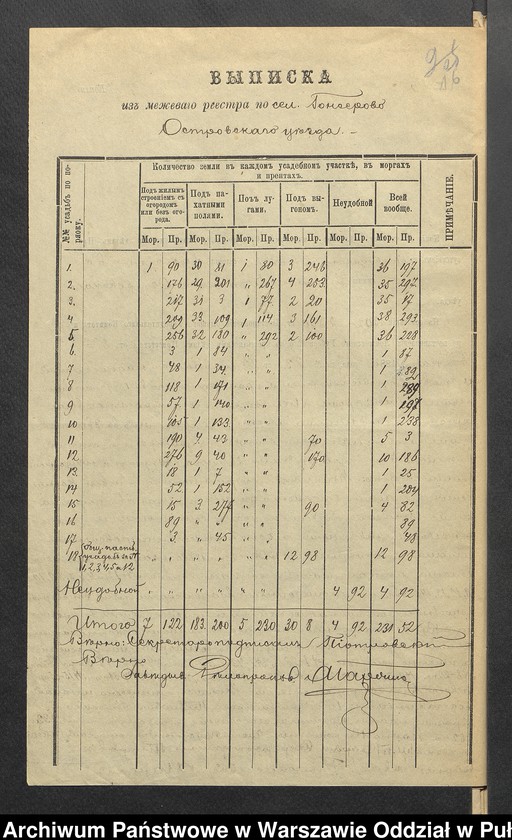 ВЫПИСКА
изъ межеваго реестра по сел. Гонсерово
Островскаго уѣзда. –
№№ усадьбъ по порядку.
Количество земли въ каждомъ усадебномъ участкѣ, въ моргахъ и прентахъ.
ПРИМѢЧАНІЕ.
Подъ жилымъ строеніемъ съ огородомъ или безъ огорода. Подъ пахатными полями. Подъ лугами. Подъ выгономъ. Неудобной Всей вообще.
Мор. Пр. Мор. Пр. Мор. Пр. Мор. Пр. Мор. Пр. Мор. Пр.
1. 1 90 30 81 1 80 3 246 36 197
2. 176 29 201 „ 267 4 253 35 297
3. 217 31 3 1 77 2 20 35 17
4 209 33 109 1 114 3 161 38 293
5 256 32 180 „ 292 2 100 36 228
6. 3 1 84 „ „ 1 87
7 48 1 34 „ „ 1
8 118 1 171 „ „ 1 289
9 57 1 140 „ „ 1 197
10 105 1 133 „ „ 1 238
11 190 4 43 „ „ 70 5 3
12 276 9 40 „ „ 170 10 186
13. 18 1 7 „ „ 1 25
14 52 1 152 „ „ 1 204
15 15 3 277 „ „ 90 4 82
16 89 „ „ „ „ 89
17 3 „ 45 „ „ 48
18 1,2,3,4,5 и 12 „ „ „ „ „ „ 12 98 12 98
Неудобной „ „ „ „ „ „ „ „ 4 92 4 92
Итого 7 122 183 200 5 230 30 8 4 92 231 52
Вѣрно: Секретарь подписалъ Піотровскій
Вѣрно
Archiwum Państwowe w Warszawie Oddział w Puł